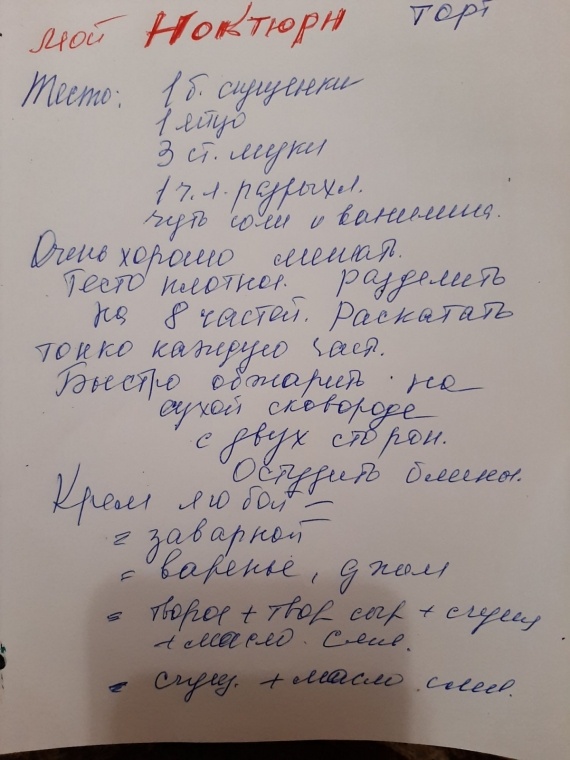 мой Ноктюрн Торт
Тесто: 1 б. сгущенки
1 яйцо
3 ст. муки
1 ч.л. разрыхл.
чуть соли и ванилина.
Очень хорошо мешать.
Тесто плотное. разделить
на 8 частей. Раскатать
тонко каждую част.
Быстро обжарить на
сухой сковороде
с двух сторон.
Остудить блины.
Крем любой =
= заварной
= варенье, джем
= творог + твор сыр + сгущ
+ масло слив.
= сгущ. + масло слив.